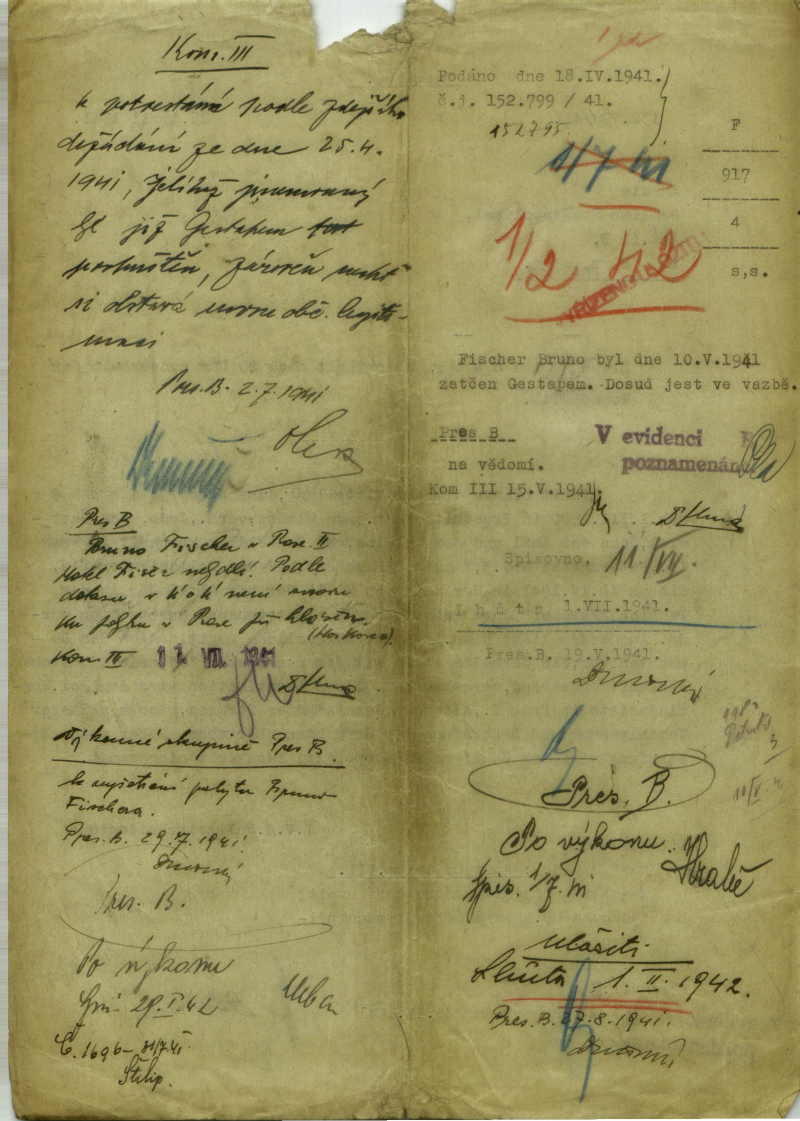 Kom. III
k potrestání podle zdejšího
dožádání ze dne 25.4.
1941, jelikož jmenovaný
byl již Gestapem
propuštěn, zároveň nechť
si obstará novou obč. legiti-
maci
Pres. B. 2.7.1941
Pres B
Bruno Fischer v Praze II
Hotel Fišer nebydlí. Podle
dotazu v není znovu
ku pobytu v Praze již hlášen.
Kom. III 11. VII. 1941
Výkonné skupině Pres B.
k vypátrání pobytu Bruno
Fischera.
Pres. B. 29.7.1941.
Dvorský
Pres. B.
Po výkonu
29.I.42
Urban
Č. 1696- 31/7.41
Štilip.
Podáno dne 18.IV.1941.
č.j. 152.799 / 41.
152795
1/7 41
F
917
4
s,s.
1/2 42
Fischer Bruno byl dne 10.V.1941
zatčen Gestapem. Dosud jest ve vazbě.
Pres B
V evidenci
poznamenán
na vědomí.
Kom III 15.V.1941.
Spisovno. 11./VII.
Lhůta 1.VII.1941.
Pres.B. 19.V.1941.
Dvorský
Pres. B.
Po výkonu.
Hrabě
spis. 1/7. 41
Uložiti
Lhůta 1. II. 1942.
Pres. B. 27.8.1941.
Dvorský